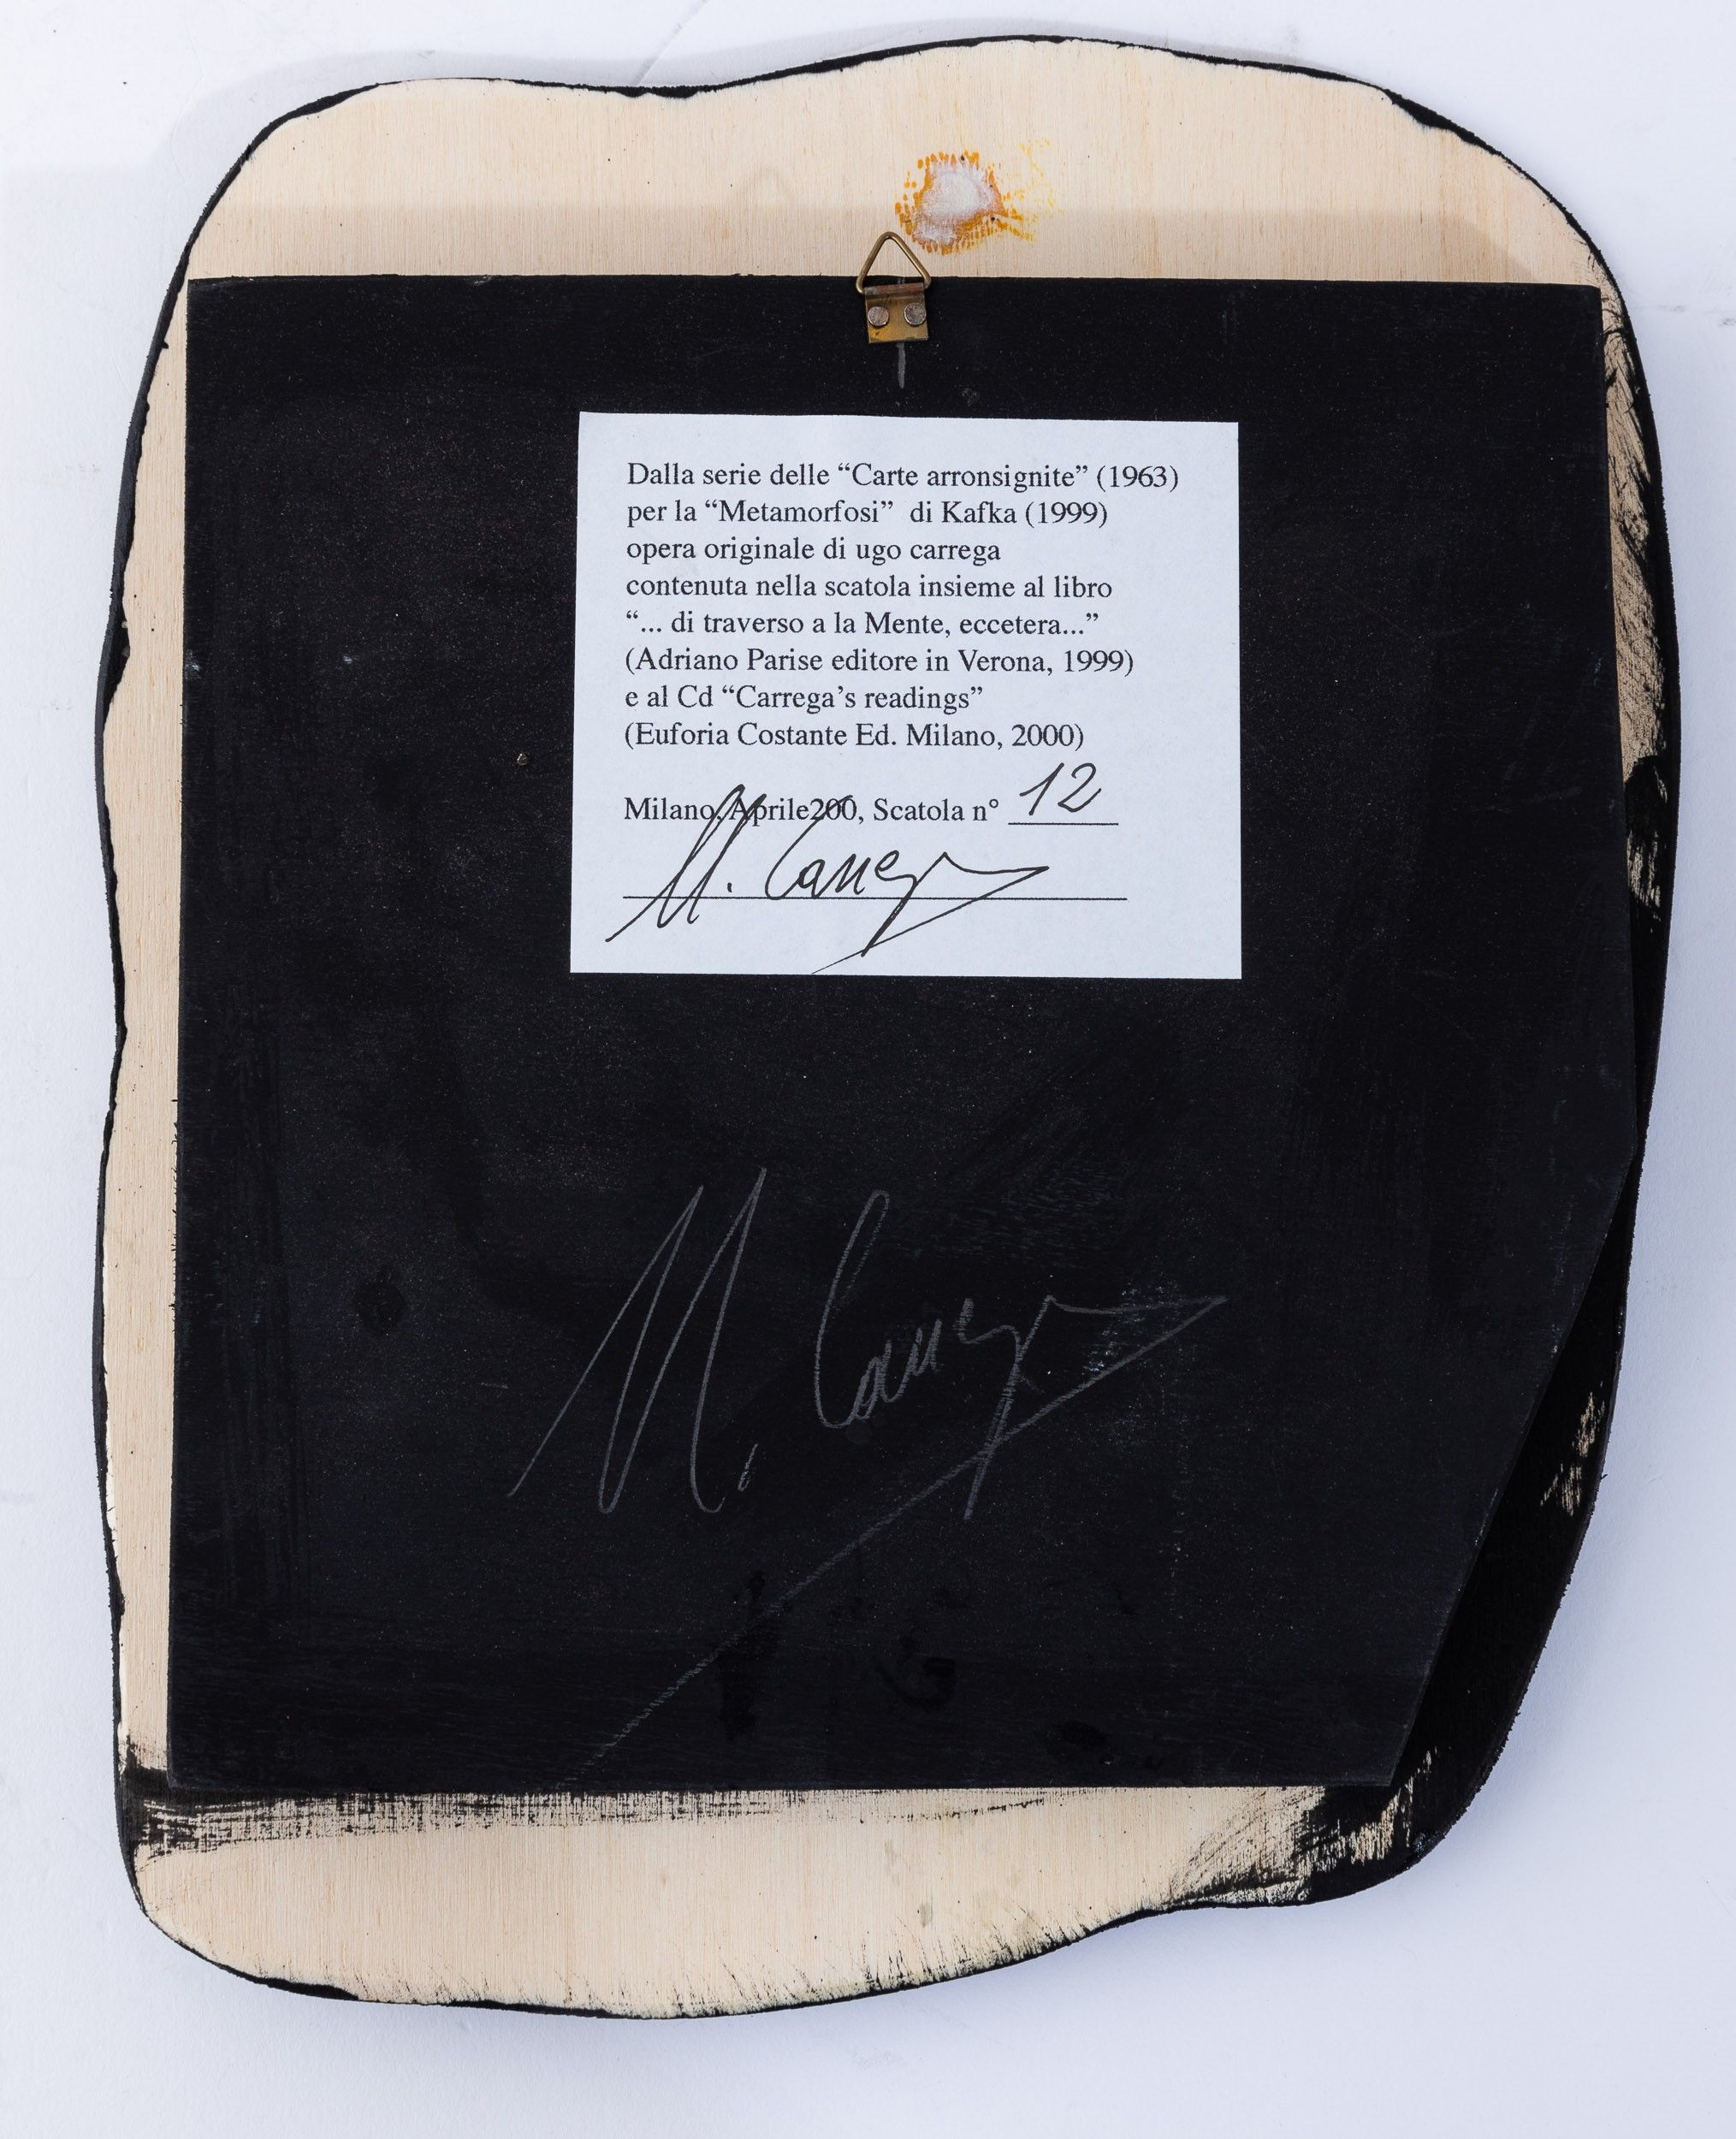 Dalla serie delle “Carte arronsignite” (1963)
per la “Metamorfosi” di Kafka (1999)
opera originale di ugo carrega
contenuta nella scatola insieme al libro
“... di traverso a la Mente, eccetera...”
(Adriano Parise editore in Verona, 1999)
e al Cd “Carrega’s readings”
(Euforia Costante Ed. Milano, 2000)
Milano, Aprile200, Scatola n° 12
U. Carrega
U. Carrega